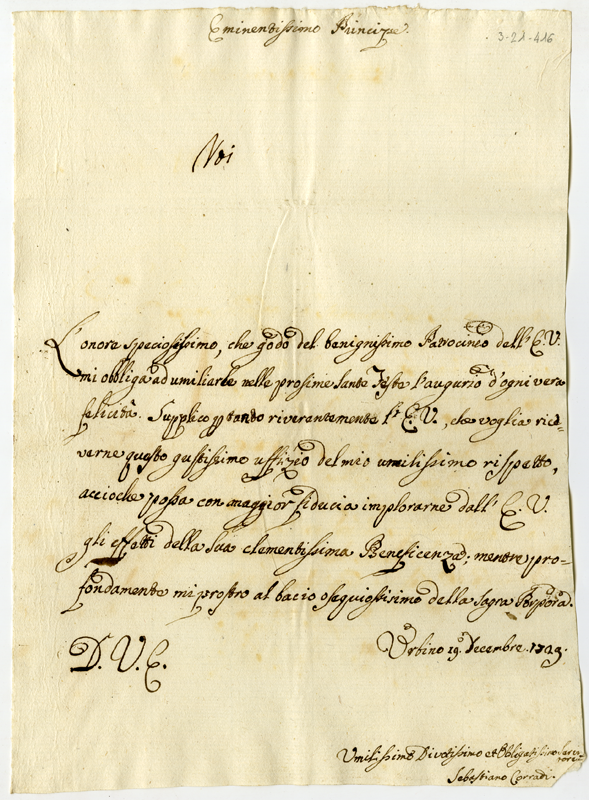 Eminentissimo Principe.
3-21-416
L'onore speciosissimo, che godo del benignissimo Patrocinio dell'E.V.
mi obbliga ad umiliarle nelle prosime Sante Feste l'augurio d'ogni vera
felicità. Supplico ptanto riverantemente l'E.V., che voglia rice-
verne questo giustissimo uffizio del mio umilissimo rispetto,
acciochè possa con maggior fiducia implorarne dall'E.V.
gli effetti della sua clementissima Beneficenza; mentre pro-
fondamente mi prostro al bacio osequiosissimo della Sagra Porpora.
D.V.E.
Urbino 19. Decembre. 1729.
Umilissimo Divotissimo et Obligatissimo Servitore
Sebastiano Corradi.